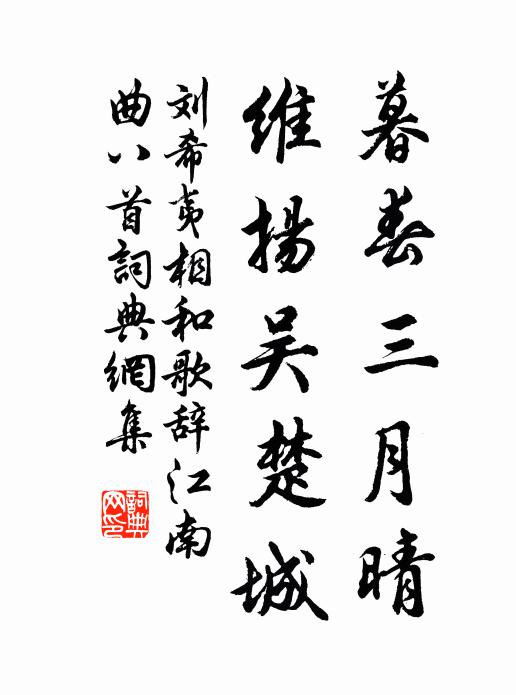 暮春三月晴
維揚吴楚城
刘希夷相和歌辞江南
曲八首詞典網集
詞典網印